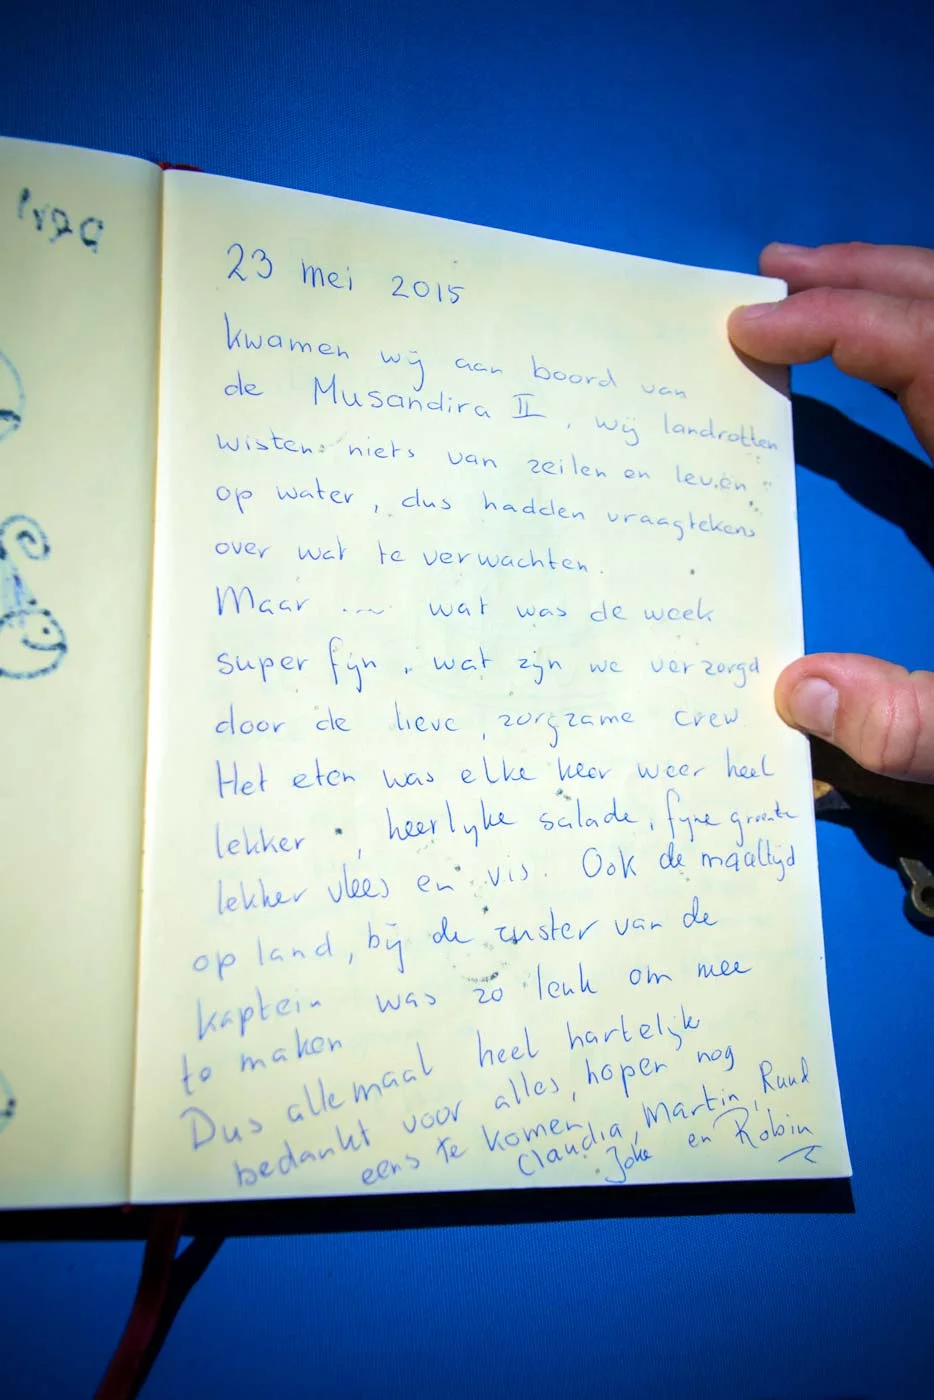 23 mei 2015
kwamen wij aan boord van
de Musandira II, wij landrotten
wisten niets van zeilen en leven
op water, dus hadden vraagtekens
over wat te verwachten.
Maar .... wat was de week
super fijn, wat zijn we verzorgd
door de lieve, zorgzame crew
Het eten was elke keer weer heel
lekker, heerlijke salade, fijne groente
lekker vlees en vis. Ook de maaltijd
op land, bij de zuster van de
kaptein was zo leuk om mee
te maken
Dus allemaal heel hartelijk
bedankt voor alles, hopen nog
eens te komen,
Claudia, Martin, Ruud
Joke en Robin